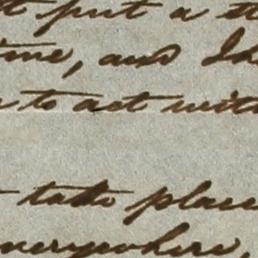 put a
, and
to act with
take place
everywhere,